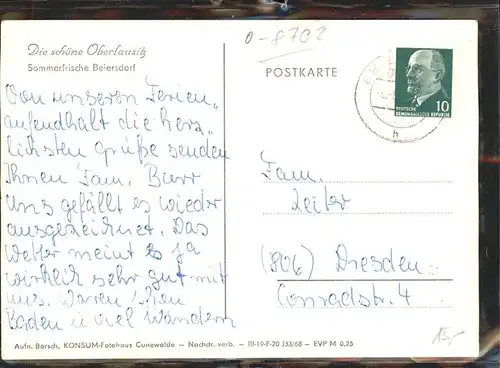 o-8702
Die schöne Oberlausitz
Sommerfrische Beiersdorf
POSTKARTE
DEUTSCHE
DEMOKRATISCHE REPUBLIK
10
h
Von unseren Ferien„
aufendhalt die herz„
lichsten Grüße senden
Ihnen Fam. Burr
Uns gefällt es wieder
ausgezeichnet. Das
Wetter meint es ja
wirklich sehr gut mit
uns. Waren schon
Baden u viel Wandern
Fam.
Zeiler
(806) Dresden
Conradstr. 4
15,-
Aufn. Borsch, KONSUM-Fotohaus Cunewalde – Nachdr. verb. – III-19-F-20 J33/68 – EVP M 0,25